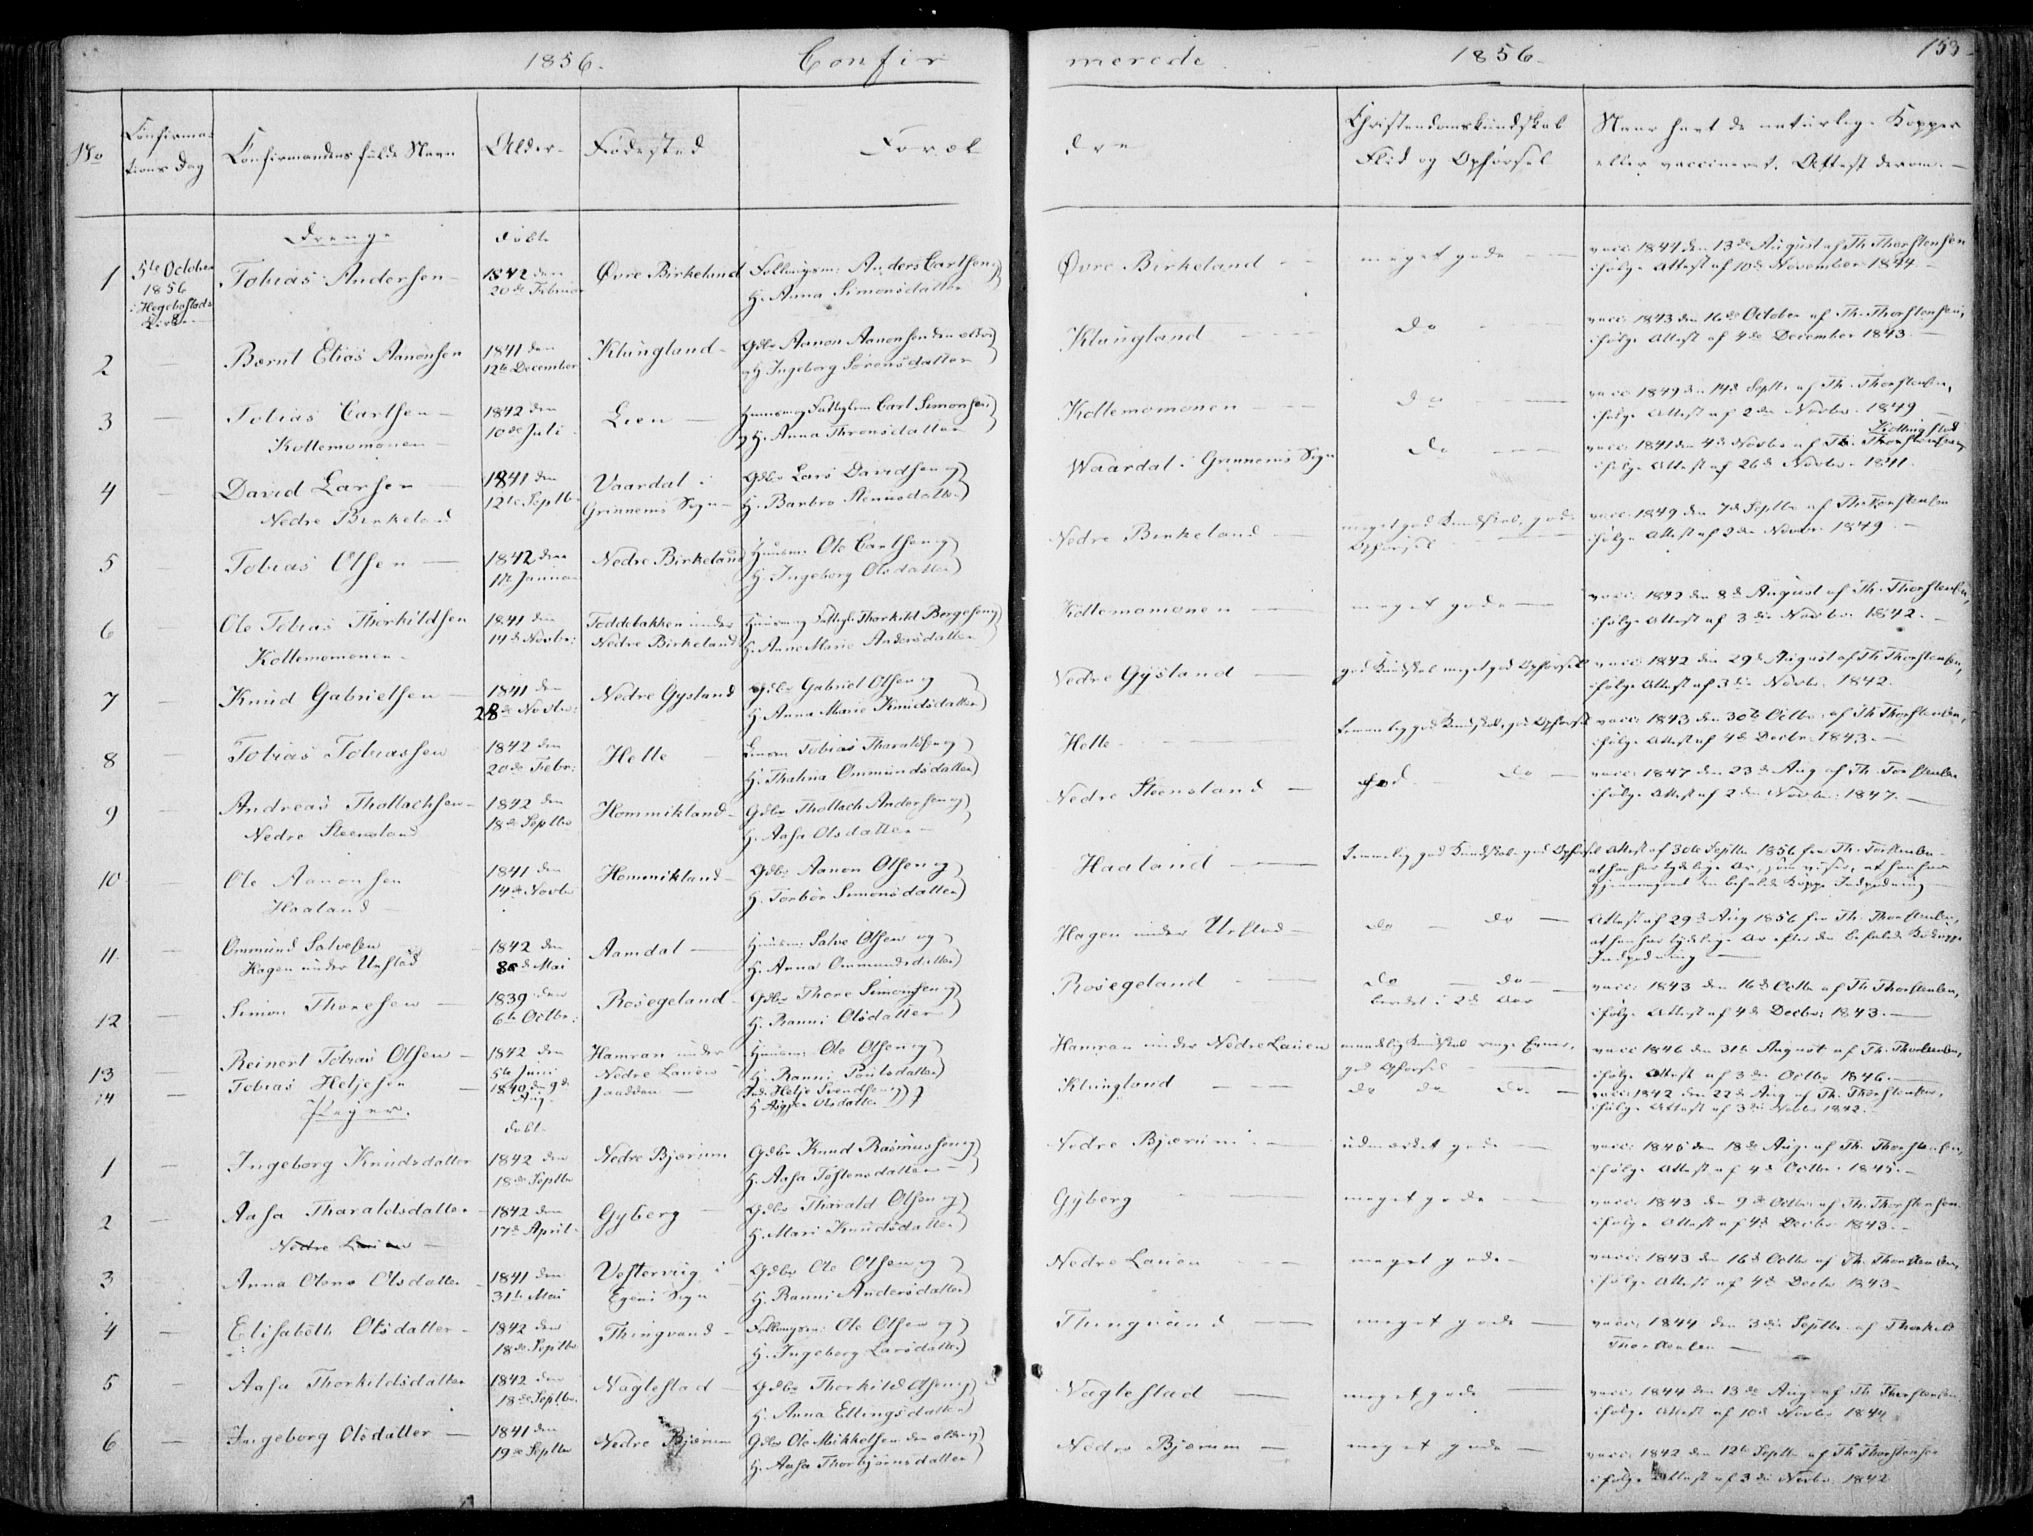 1856.
Confirmerede
1856.
153
No
Confirmations Dag
Confirmandens fulde Navn
Alder
Fødested
Forældre
Christendomskundskab
Flid og Opførsel
Naar havt de naturlige Kopper
eller vaccineret. Attest derom.
Drenge
døbt
1 5te October 1856 i Hegebostads Kirke Tobias Andersen 1842 den 20de Februar Øvre Birkeland Anders Carlsen og H. Anna Simonsdatter Øvre Birkeland meget gode vacc: 1844 den 13de August af Th. Thorstensen ifølge Attest af 10de November 1844
2 Bernt Elias Aanonsen 1841 den 12te December Klungland Gdbr Aanon Aanonsen den eldre og H. Ingeborg Sørensdatter Klungland do vacc: 1843 den 16de October af Th. Thorstensen, ifølge Attest af 4de December 1843
3 Tobias Carlsen Kollemomonen 1842 den 10de Juli Lien Carl Simonsen og H. Anna Thronsdatter Kollemomonen do vacc: 1849 den 14de Septbr af Th. Thorstensen, ifølge Attest af 2den Novbr. 1849
4 David Larsen Nedre Birkeland 1841 den 12te Septbr Vaardal i Grinnems Sogn Gdbr Lars Davidsen og H. Barbro Aanusdatter Waardal i Grinnems Sogn do vacc: 1841 den 4de Novbr af Th. ifølge Attest af 26de Novbr. 1841.
5 Tobias Olsen 1842 den 1te Januar Nedre Birkeland Huusm: Ole Carlsen og H. Ingeborg Olsdatter Nedre Birkeland meget god Kundskab, gode Opførsel vacc: 1849 den 7de Septbr af Th. Torstensen ifølge Attest af 2den Novbr. 1849.
6 Ole Tobias Thorkildsen Kollemomonen 1841 den 14de Novbr: Toddebakken under Nedre Birkeland Thorkild Bergesen og H. Anne Marie Andersdatter Kollemomonen meget gode vacc: 1842 den 8de August af Th. Thorstensen, ifølge Attest af 3die Novbr. 1842.
7 Knud Gabrielsen 1841 den 28de Novbr: Nedre Gysland Gdbr Gabriel Olsen og H. Anna Marie Knudsdatter Nedre Gysland god Kundskab meget god Opførsel vacc: 1842 den 29de August af Th. Thorstensen, ifølge Attest af 3die Novbr. 1842.
8 Tobias Tobiassen 1842 den 20de Febr: Helle Tobias Tharaldsen og H. Thalina Ommundsdatter Helle temmelig god Kundskab, god Opførsel vacc: 1843 den 30te Octbr: af Th. Thorstensen, ifølge Attest af 4de Decbr. 1843.
9 Andreas Thollachsen Nedre Steensland 1842 18de Septbr Hommikland Gdbr Thollach Andersen og H. Aasa Olsdatter Nedre Steensland god do vacc: 1847 den 23de Aug af Th. Torstensen ifølge Attest af 2den Novbr: 1847.
10 Ole Aanonsen Haaland 1841 den 14de Novbr Hommikland Gdbr Aanon Olsen og H. Torbør Simonsdatter Haaland temmelig god Kundskab, god Opførsel Attest af 30te Septbr 1856 fra Th. Torstensen at han har tydelige Ar, som viser, at han har gjennemgaaet den befalede Koppe Indpodning
11 Ommund Salvesen Hagen under Urstad 1842 den 8de Mai Aamdal Huusm: Salve Olsen og H. Anna Ommundsdatter Hagen under Urstad do do Attest af 29de Aug 1856 fra Th. Thorstensen, at han har tydelige Ar efter den befalede Kokoppe Indpodning
12 Simon Thoresen 1839 den 6te Octbr: Rosegeland Gdbr Thore Simonsen og H. Ranni Olsdatter Rosegeland do do i 2det Aar vacc: 1843 den 16de Octbr af Th. Thorstensen, ifølge Attest af 4de Decbr: 1843.
13 Reinert Tobias Olsen 1842 den 5te Juni Hamran under Nedre Lauen Huusm: Ole Olsen og H. Ranni Poulsdatter Hamran under Nedre Lauen maadelig Kundskab ringe Evner, god Opførsel vacc: 1846 den 31te August af Th. Thorstensen, ifølge Attest af 3die Octbr 1846.
14 Tobias Heljesen 1840 den 9de Aug. Helje Svendsen og H. Olsdatter Klungland do do do vacc: 1842 den 22de Aug af Th. Thorstensen, ifølge Attest af 3die Novbr 1842.
Piger.
døbt
1 Ingeborg Knudsdatter 1842 den 18de Septbr Nedre Bjærum Gdbr Knud Rasmussen og H. Aasa Tostensdatter Nedre Bjærum udmærket gode vacc: 1845 den 18de Aug: af Th. Thorstensen, ifølge Attest af 4de Octbr. 1845.
2 Aasa Tharaldsdatter Nedre Lauen 1842 den 17de April Gyberg Gdbr Tharald Olsen og H. Mari Knudsdatter Gyberg meget gode vacc: 1843 den 9de Octbr: af Th. Thorstensen. ifølge Attest af 4de Decbr 1843.
3 Anna Olene Olsdatter 1841 den 31te Mai i Sogn Gdbr Ole Olsen og H. Ranni Andersdatter Nedre Lauen meget gode vacc: 1843 den 16de Octbr af Th. Thorstensen, ifølge Attest af 4de Decbr 1843
4 Elisabeth Olsdatter 1842 den 18de Septbr Thingvand Ole Olsen og H. Ingeborg Larsdatter Thingvand meget gode vacc: 1844 den 3die Septbr af Thorkild Thorstensen
5 Aasa Thorkildsdatter 1842 den 18de Septbr. Naglestad Gdbr Thorkild Olsen og H. Anna Ellingsdatter Naglestad meget gode vacc: 1844 den 13de Aug: af Th. Thorstensen ifølge Attest af 10de Novbr 1844
6 Ingeborg Olsdatter 1841 den 19de Septbr Nedre Bjærum Gdbr Ole Mikkelsen den eldre og H. Aasa Thorbjørnsdatter Nedre Bjærum meget gode vacc: 1842 den 12te Septbr af Th. Thorstensen ifølge Attest af 3die Novbr. 1842